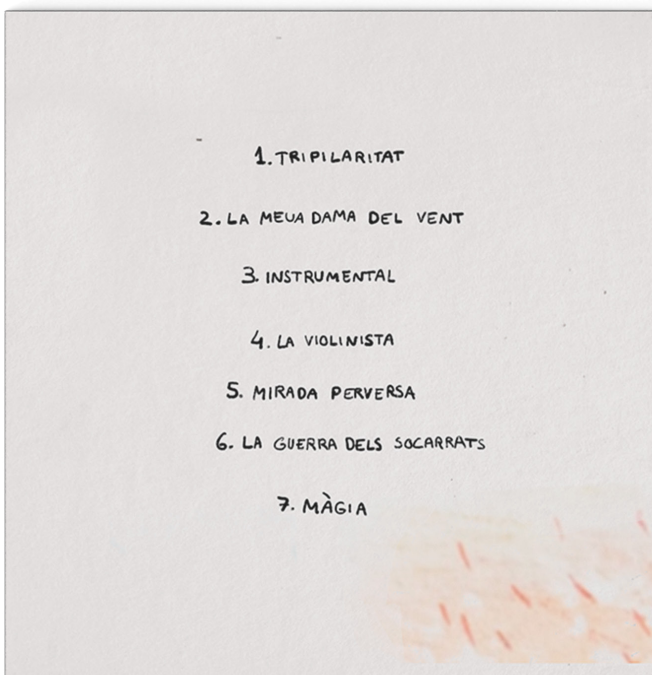 1. TRIPILARITAT
2. LA MEUA DAMA DEL VENT
3. INSTRUMENTAL
4. LA VIOLINISTA
5. MIRADA PERVERSA
6. LA GUERRA DELS SOCARRATS
7. MÀGIA